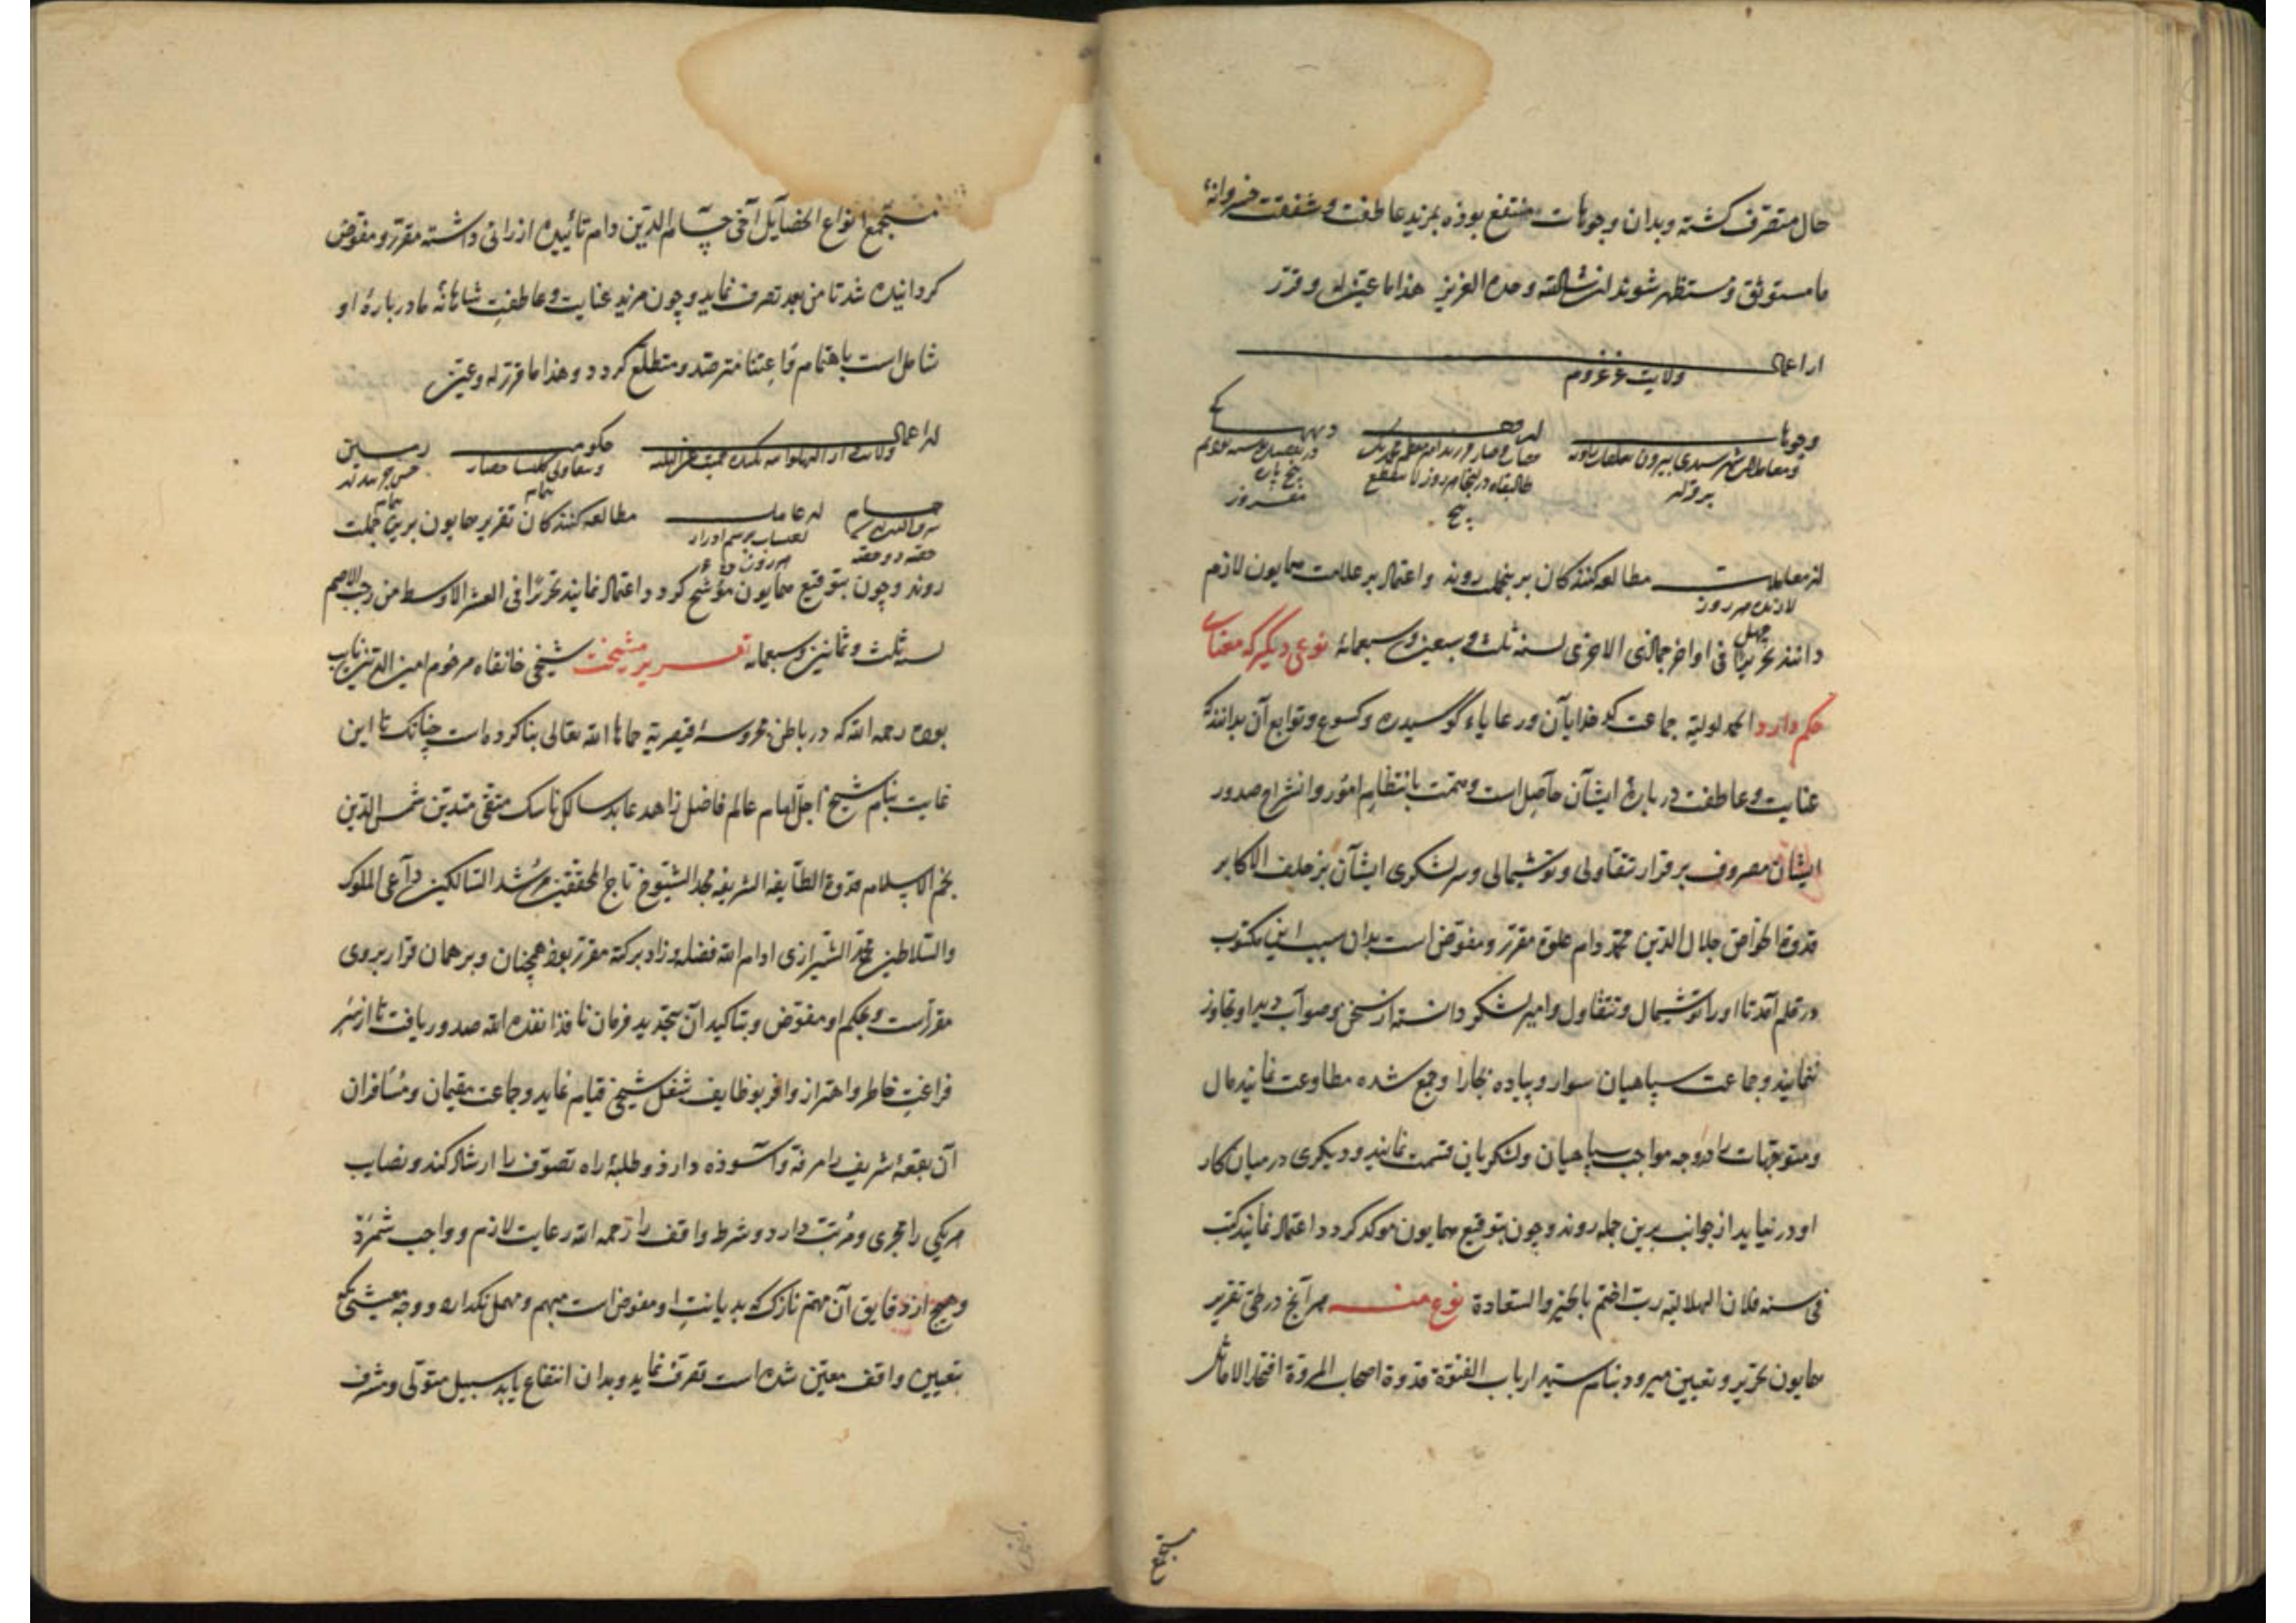 حال متصرف گشته و بدان وجوهات منتفع بوذه بمزید عاطفت و شفقت خسروانهٔ
ما مستوثق و مستظهر شوند ان شا الله وحده العزیز هذا ما عین له و قرر
از اعمال
ولایت
وجوهات
دیهها
از معاملات مطالعه کنندکان برینجمله روند و اعتماد بر علامت همایون لازم
چهل
دانند تحریرا فی اواخر جمادی الاخری لسنه ثلث و سبعین و سبعمائة نوعی دیگر که معنای
حکم دارد الحمد لولیه جماعت کدخدایان و رعایاء کوسیدره و کسوع و توابع آن بدانند که
عنایت و عاطفت در بارهٔ ایشان حاصل است و همت بانتظام امور و انشراح صدور
ایشان مصروف بر قرار تقاولی و توشیمالی و سرلشکری ایشان بر خلف الاکابر
قدوة الخواص جلال الدین محمد دام علوه مقرر و مفوض است بدان سبب این مکتوب
در قلم آمد تا او را توشیمال و تتقاول و امیر لشکر دانسته از سخن و صواب دید او تجاوز
ننمایند و جماعت سپاهیان سوار و پیاده بخارا و جمع شده مطاوعت نمایند مال
و متوجهات را در وجه مواجب سپاهیان و لشکریان قسمت نمایند و دیکری در میان کار
او در نیاید از جوانب برین جمله روند و چون بتوقیع همایون موکد کردد اعتماد نمایند کتب
فی سنه فلان الهلالیه رب اختم بالخیر و السعادة نوع منه هر آنج در طی تقریر
همایون تحریر و تعیین میرود بنام سید ارباب الفتوة قدوة اصحاب المروة افتخار الاماثل
مستجمع انواع الخصایل اخی حسام الدین دام تأییده ارزانی داشته مقرر و مفوض
کردانیده شد تا من بعد تصرف نماید و چون مزید عنایت و عاطفت شاهانهٔ ما در بارهٔ او
شامل است باهتمام و اعتنا مترصد و متطلع کردد و هذا ما قرر له و عین
از اعمال
حکومت
زمین
از عاملات مطالعه کنندکان تقریر همایون برین جملت
روند و چون بتوقیع همایون موشح کردد اعتماد نمایند تحریرا فی العشر الاوسط من رجب الاصم
لسنه ثلث و ثمانین و سبعمایه تقریر مشیخت شیخی خانقاه مرحوم امین الدین نایب
بوده رحمه الله که در باطن محروسهٔ قیصریه حماها الله تعالی بنا کرده است چنانک تا این
غایت بنام شیخ اجل امام عالم فاضل زاهد عابد سالک ناسک متقی متدین شمس الدین
نجم الاسلام قدوة الطایفه الشریفه مجد الشیوخ تاج المحققین مرشد السالکین داعی الملوک
و السلاطین محمد الشیرازی ادام الله فضله و زاد برکته مقرر بوذ همچنان و بر همان قرار بروی
مقررست و بحکم او مفوض و بتاکید آن بتجدید فرمان نافذ انفذه الله صدور یافت تا از سر
فراغت خاطر و احتراز وافر بوظایف شغل شیخی قیام نماید و جماعت مقیمان و مسافران
آن بقعهٔ شریف را مرفه و آسوذه دارذ و طلبهٔ راه تصوف را ارشاد کند و نصاب
هر یکی را مجری و مرتب دارد و شرط واقف را رحمه الله رعایت لازم و واجب شمرد
و هیچ از دقایق آن مهتم نازک که بدیانت او مفوض است مبهم و مهمل نکدارد و وجه معیشتی که
بتعیین واقف معین شده است تصرف نماید و بدان انتفاع یابد سبیل متولی و مشرف